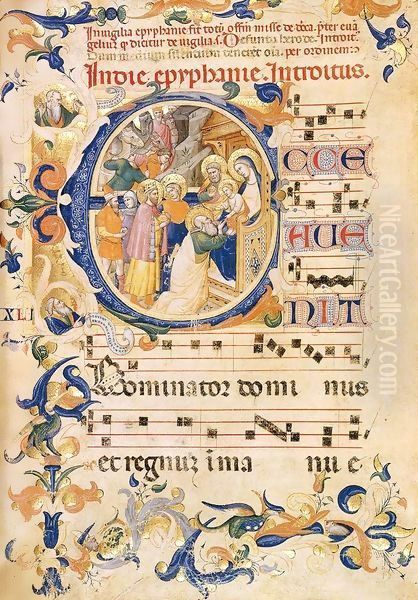 In uigilia epyphanie fit totū offm̄ misse de dōca. pter euā
gelium q̄ dicitur de uigilia. s. Defuncto herode. Introit.
Dum medium silentium teneret oīa. per ordinem
In die epyphanie. Introitus.
E
CCE
AVE
NIT
XLI
dominator domi nus
et regnuʒ i ma nu e
NiceArtGallery.com